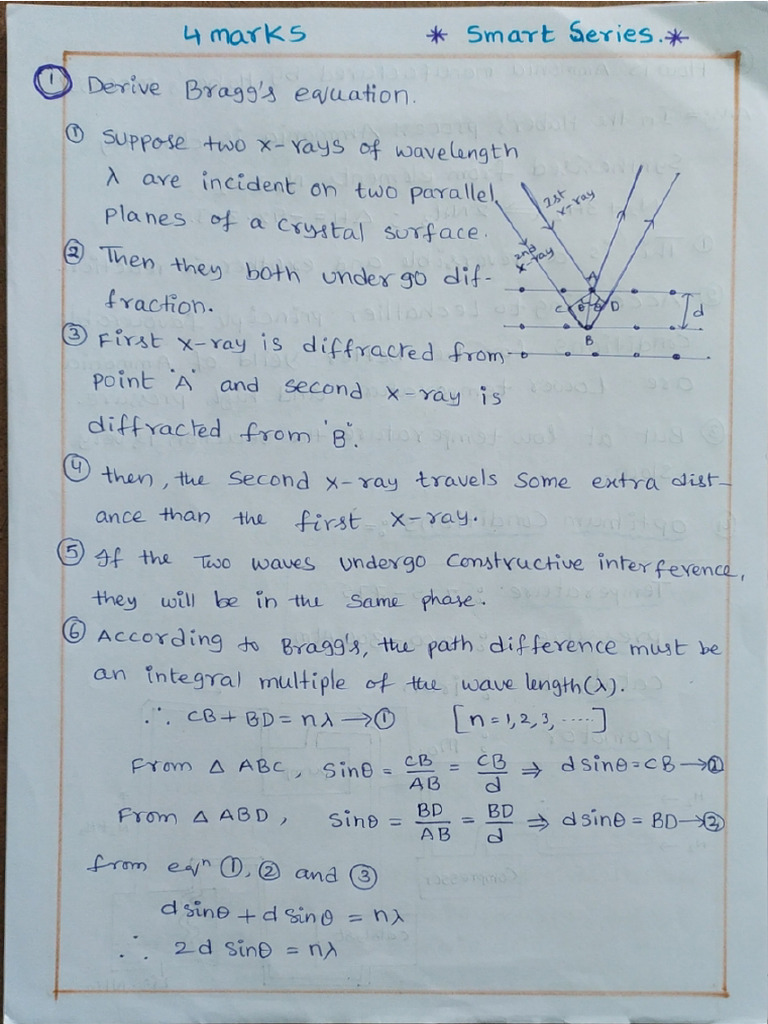 4 marks * Smart Series.*
① Derive Bragg's equation.
① Suppose two x-rays of wavelength
λ are incident on two parallel
planes of a crystal surface.
② Then they both undergo dif-
fraction.
③ First x-ray is diffracted from
point 'A' and second x-ray is
diffracted from 'B'.
1st
x-ray
2nd
x-ray
A
C θ θ D
B
d
④ then, the second x-ray travels some extra dist-
ance than the first x-ray.
⑤ If the Two waves undergo constructive interference,
they will be in the same phase.
⑥ According to Bragg's, the path difference must be
an integral multiple of the wave length(λ).
∴ CB + BD = nλ → ① [n = 1, 2, 3, .....]
From △ ABC, Sinθ = CB/AB = CB/d ⇒ d sinθ = CB → ②
From △ ABD, Sinθ = BD/AB = BD/d ⇒ d sinθ = BD → ③
from eqⁿ ①, ② and ③
d sinθ + d sinθ = nλ
∴ 2d Sinθ = nλ